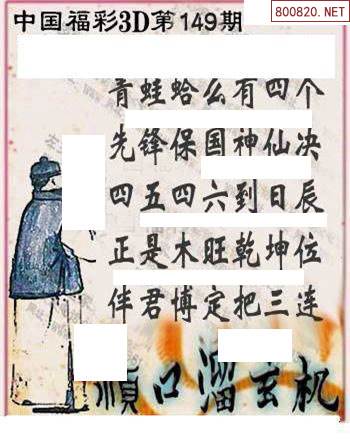 中国福彩3D第149期
800820.NET
青蛙蛤么有四个
先锋保国神仙决
四五四六到日辰
正是木旺乾坤位
伴君博定把三连
顺口溜玄机